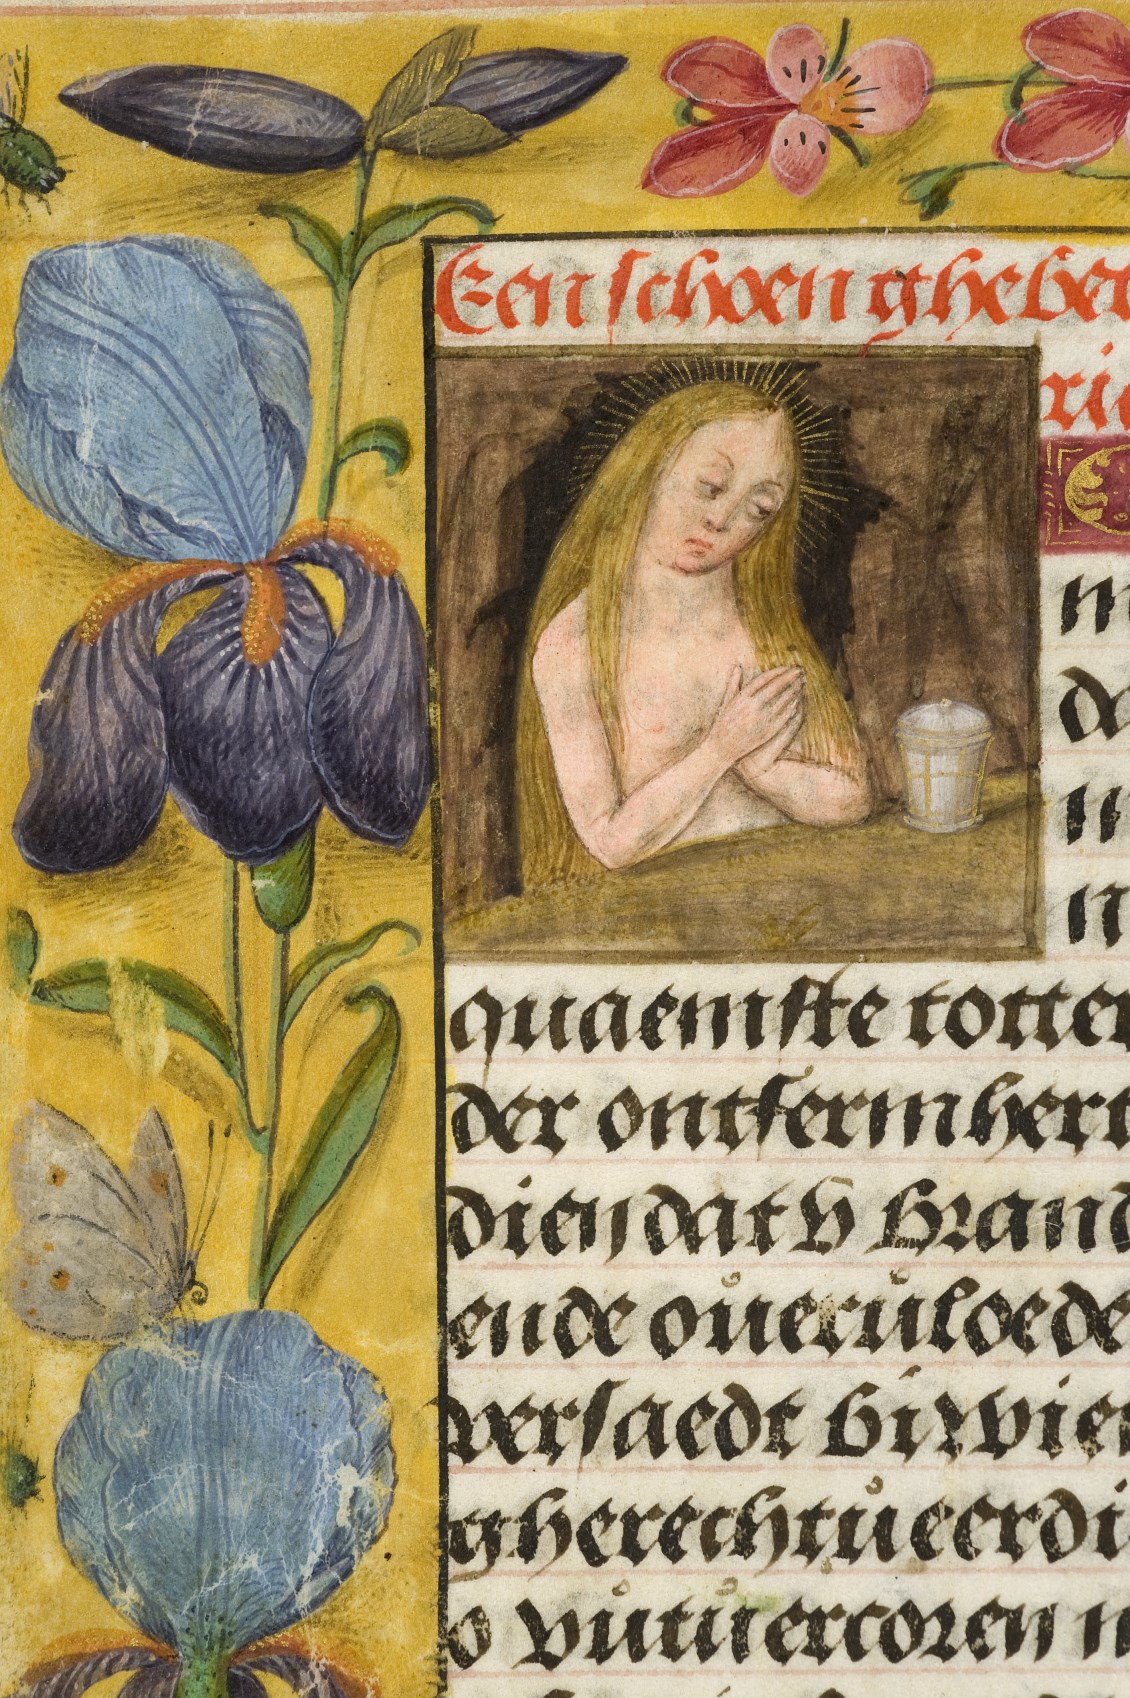 Een schoen ghebe
ri
O
m
da
in
n
quaemste totter
der ontfermhert
dien dat v brand
ende oueruloede
versaedt bi wien
gherechtueerdi
v vutuercoren